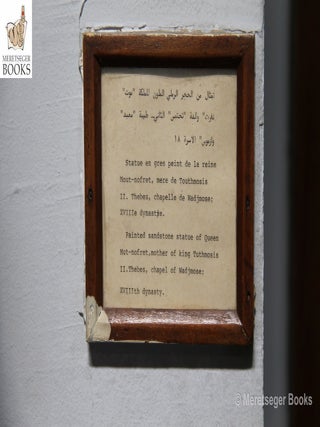 MERETSEGER
BOOKS
تمثال من الحجر الرملي الملون للملكة "موت
نفرت" والدة "تحتمس" الثاني، طيبة "معبد
وازموس" الاسرة ١٨
Statue en gres peint de la reine
Mout-nofret, mere de Touthmosis
II. Thebes, chapelle de Wadjmose;
XVIIIe dynastie.
Painted sandstone statue of Queen
Mut-nofret,mother of king Tuthmosis
II.Thebes, chapel of Wadjmose;
XVIIIth dynasty.
© Meretseger Books